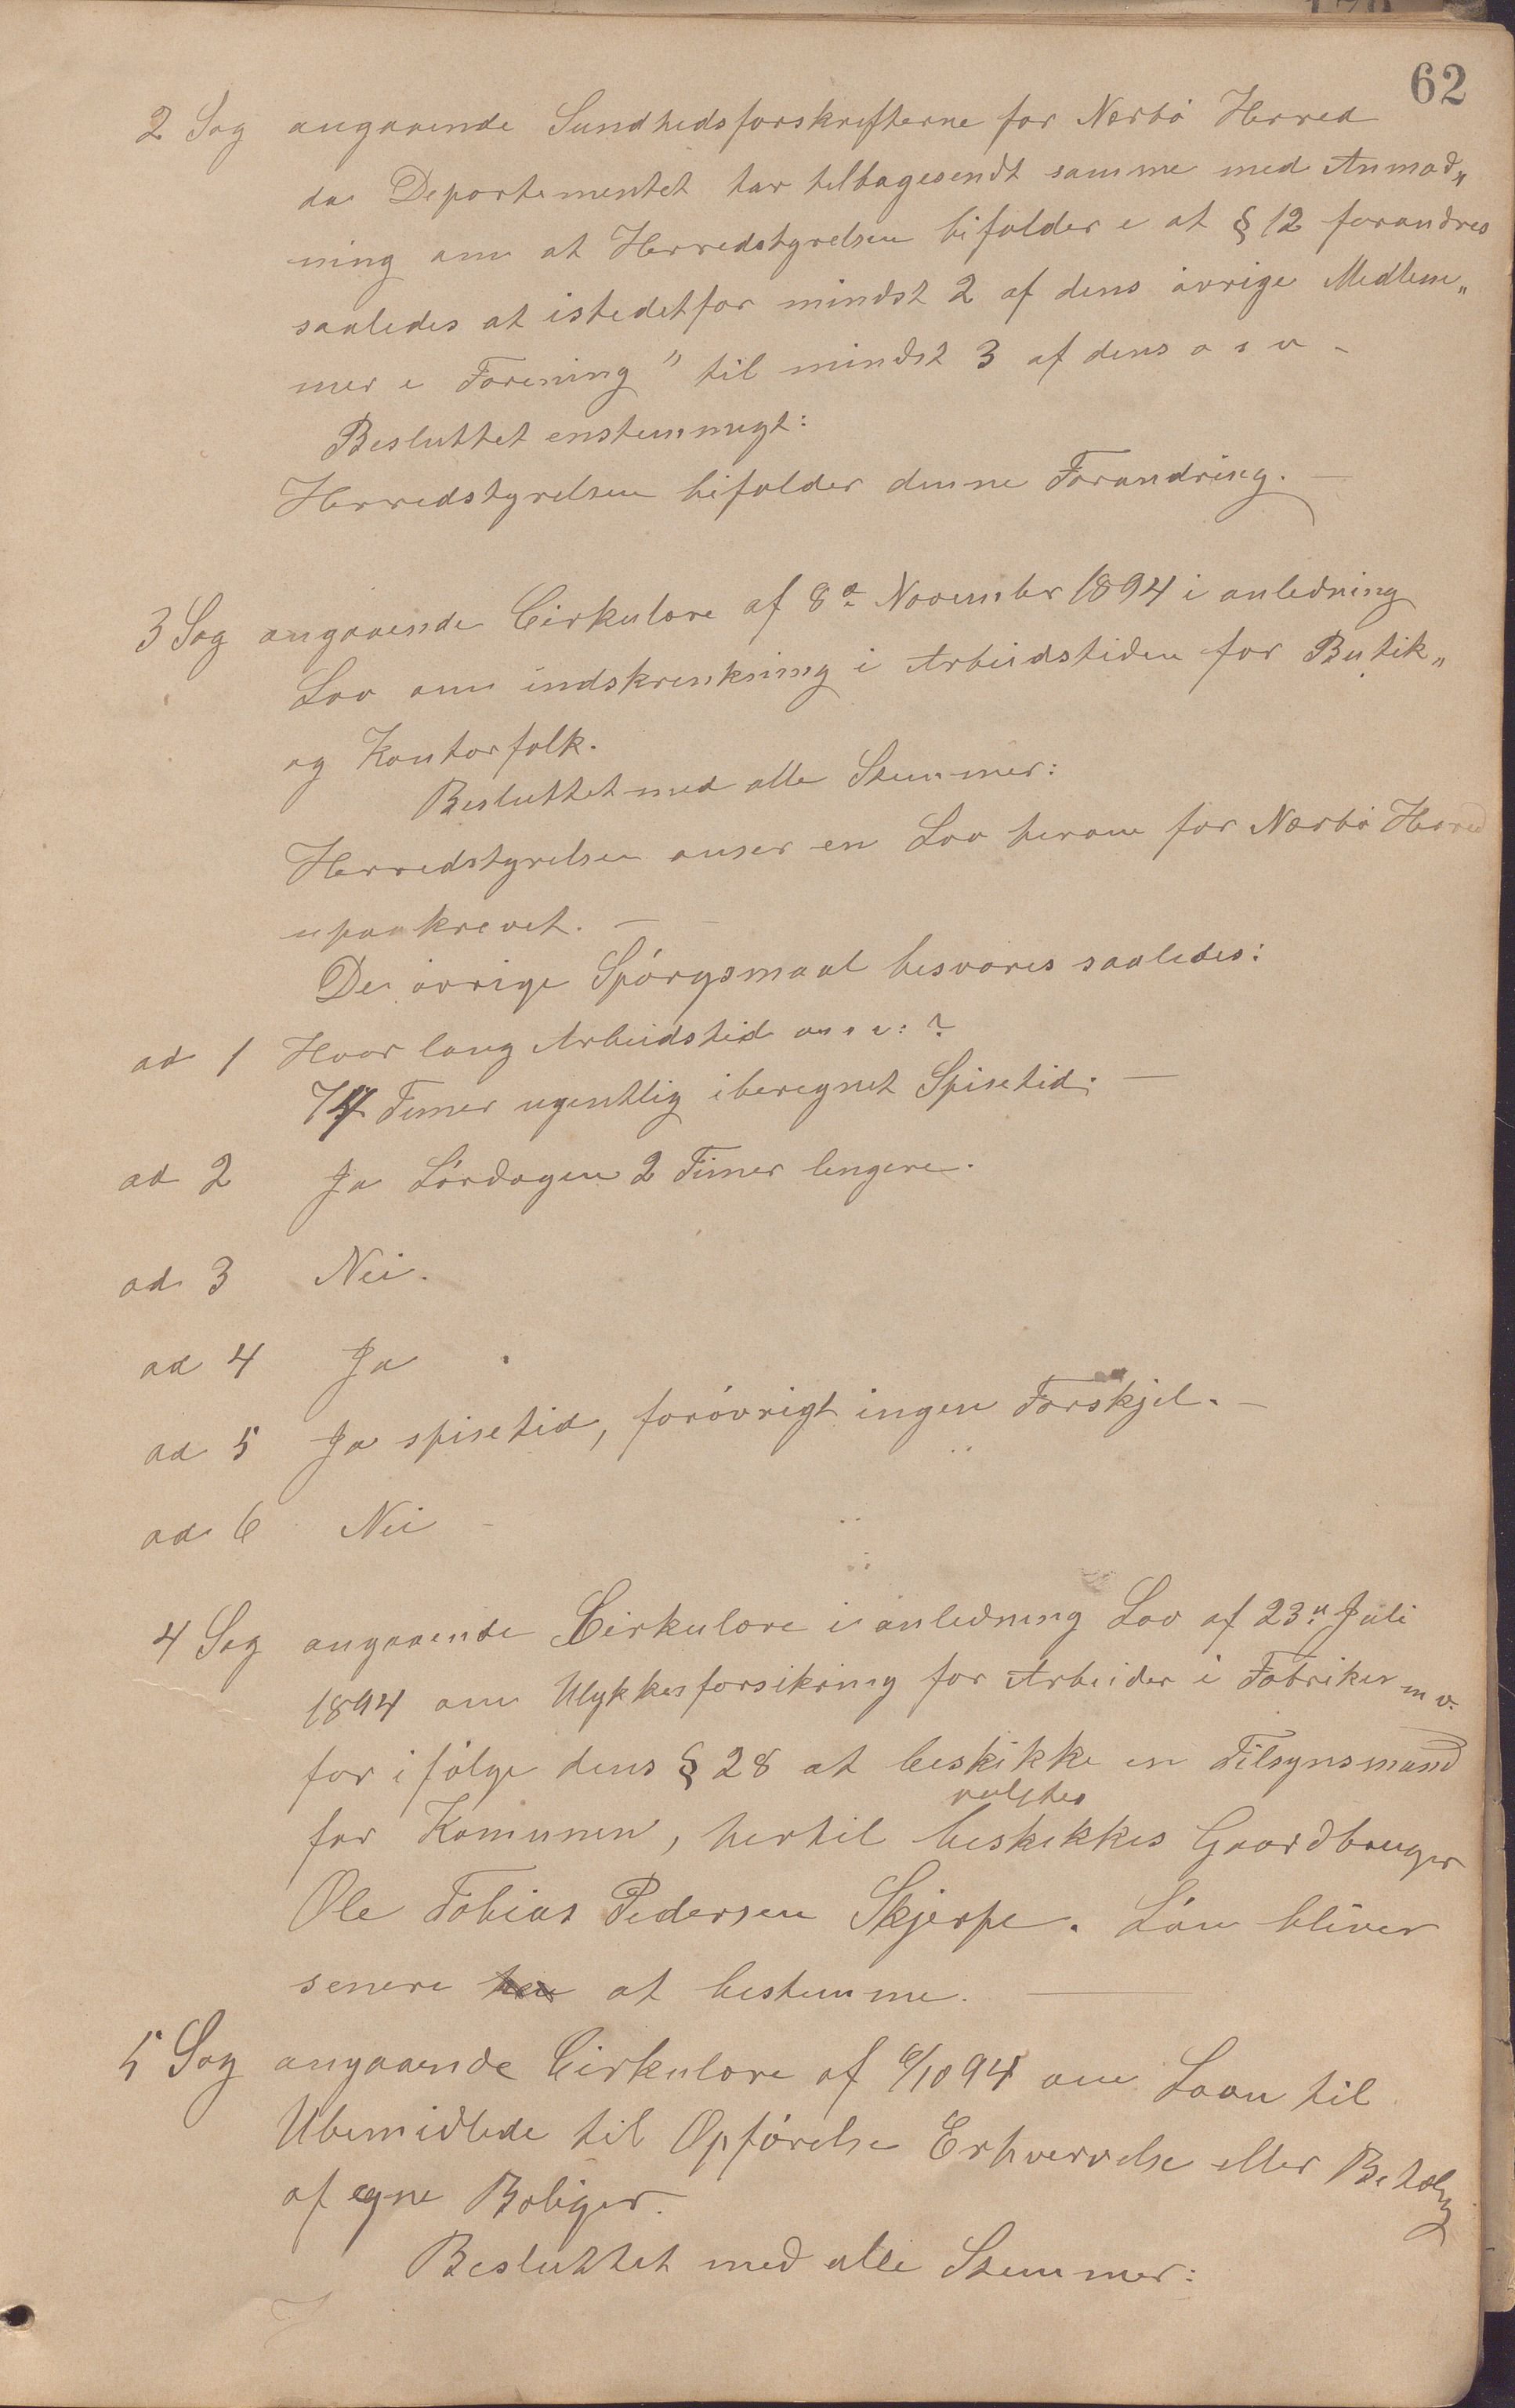 62
2 Sag angaaende Sundhedsforskrifterne for Nærbö Herred
da Departementet har tilbagesendt samme med Anmod„
ning om at Herredstyrelsen bifalder i at § 12 forandres
saaledes at istedetfor mindst 2 af dens övrige Medlem„
mer i Forening" til mindst 3 af dens o s v -
Besluttet enstemmigt:
Herredstyrelsen bifalder denne Forandring. —
3 Sag angaaende Cirkulære af 8de November 1894 i anledning
Lov om indskrænkning i Arbeidstiden for Butik„
og Kontorfolk.
Besluttet med alle Stemmer:
Herredstyrelsen anser en Lov herom for Nærbö Herred
upaakrevet. — —
De övrige Spörgsmaal besvares saaledes:
ad 1 Hvor lang Arbeidstid o s v: ?
Timer ugentlig iberegnet Spisetid. —
ad 2 Ja Lördagen 2 Timer længere.
ad 3 Nei.
ad 4 Ja
ad 5 Ja spisetid, forövrigt ingen Forskjel. —
ad 6 Nei -
4 Sag angaaende Cirkulære i anledning Lov af 23n Juli
1894 om Ulykkesforsikring for Arbeider i Fabriker m v.
for ifölge dens § 28 at beskikke en Tilsynsmand
valgtes
for Komunen, hertil beskikkes Gaardbruger
Ole Tobias Pedersen Skjerpe. Lön bliver
senere at bestemme. —
5 Sag angaaende Cirkulære af 6/10 94 om Laan til
Ubemidlede til Opförelse Erhvervelse eller Beholdg
af egne Boliger.
Besluttet med alle Stemmer: